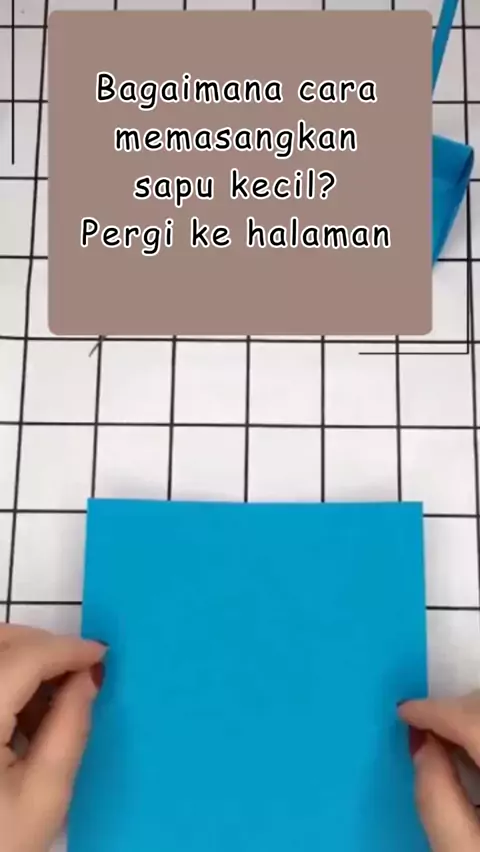 Bagaimana cara
memasangkan
sapu kecil?
Pergi ke halaman